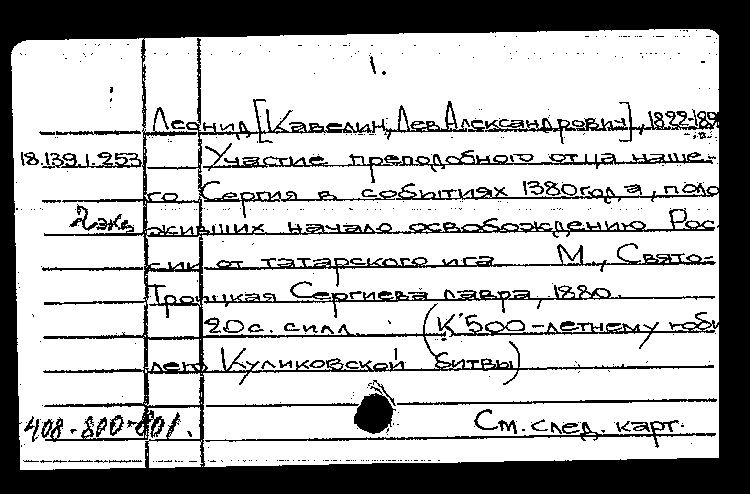 1.
Леонид [Кавелин, Лев Александрович], 1822-189
18.139.1.253 Участие преподобного отца наше-
го Сергия в событиях 1380 года, поло
2 экз живших начало освобождению Рос
сии от татарского ига М., Свято-
Троицкая Сергиева лавра, 1880.
20 с. с илл. (К 500-летнему юби
лею Куликовской битвы)
408-800-801. См. след. карт.